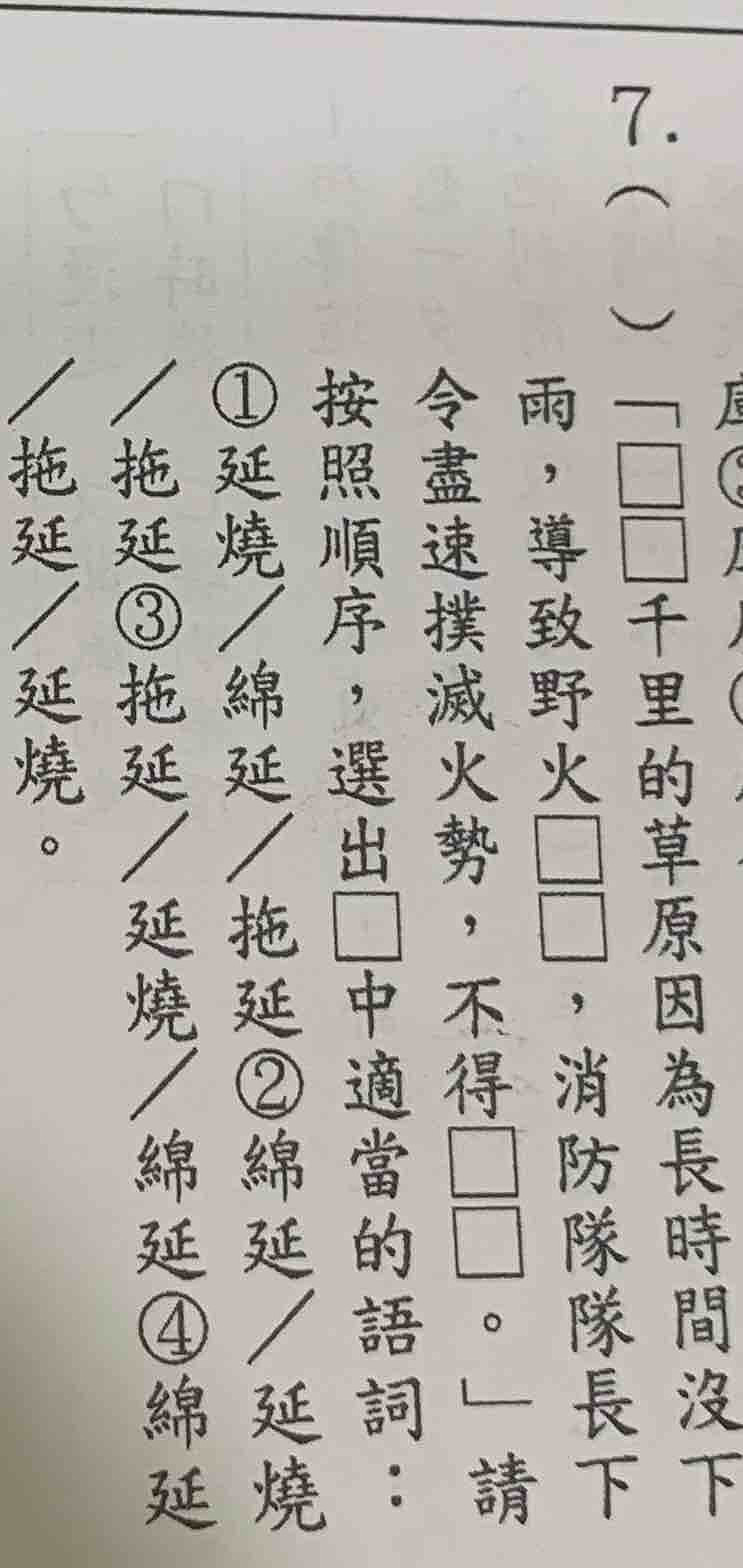 7.（ ）「□□千里的草原因為長時間沒下
雨，導致野火□□，消防隊隊長下
令盡速撲滅火勢，不得□□。」請
按照順序，選出□中適當的語詞：
①延燒／綿延／拖延②綿延／延燒
／拖延③拖延／延燒／綿延④綿延
／拖延／延燒。